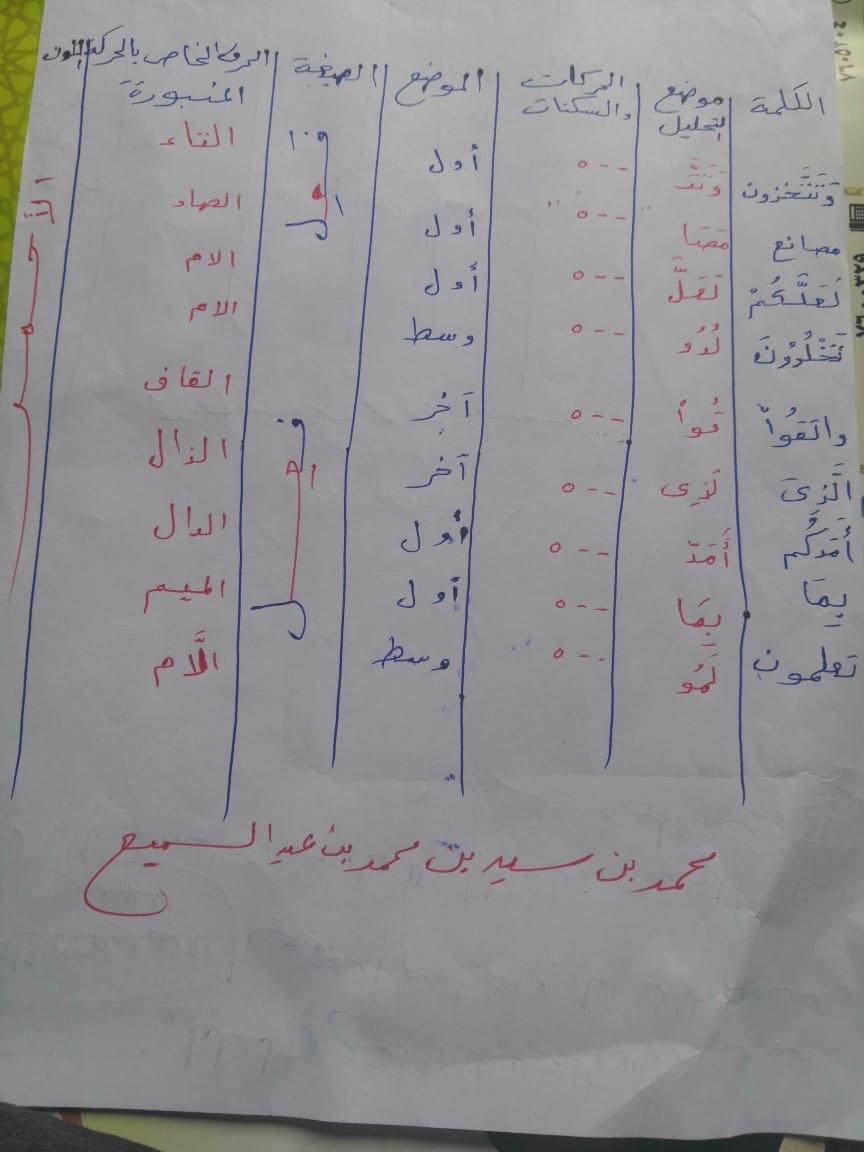 الكلمة موضع التحليل الحركات والسكنات الموضع الصيغة الحرف الخاص بالحركة المنبورة اللون
وَتَتَّخذون وَتَتَّ --o أول فا التاء
مصانع مَصَا --o أول الصاد
لَعَلَّكُمْ لَعَلَّ --o أول الام
تَخْلُدُونَ لُدُو --o وسط الام
واتقُواْ قُواْ --o آخر القاف
الَّذِى لَذِى --o آخر الذال
أَمَدَّكُم أَمَدّ --o أول الدال
بِمَا بِمَا --o أول الميم
تعلمون لَمُو --o وسط الَّام
الأحمر
محمد بن سيد بن محمد بن عبد السميع